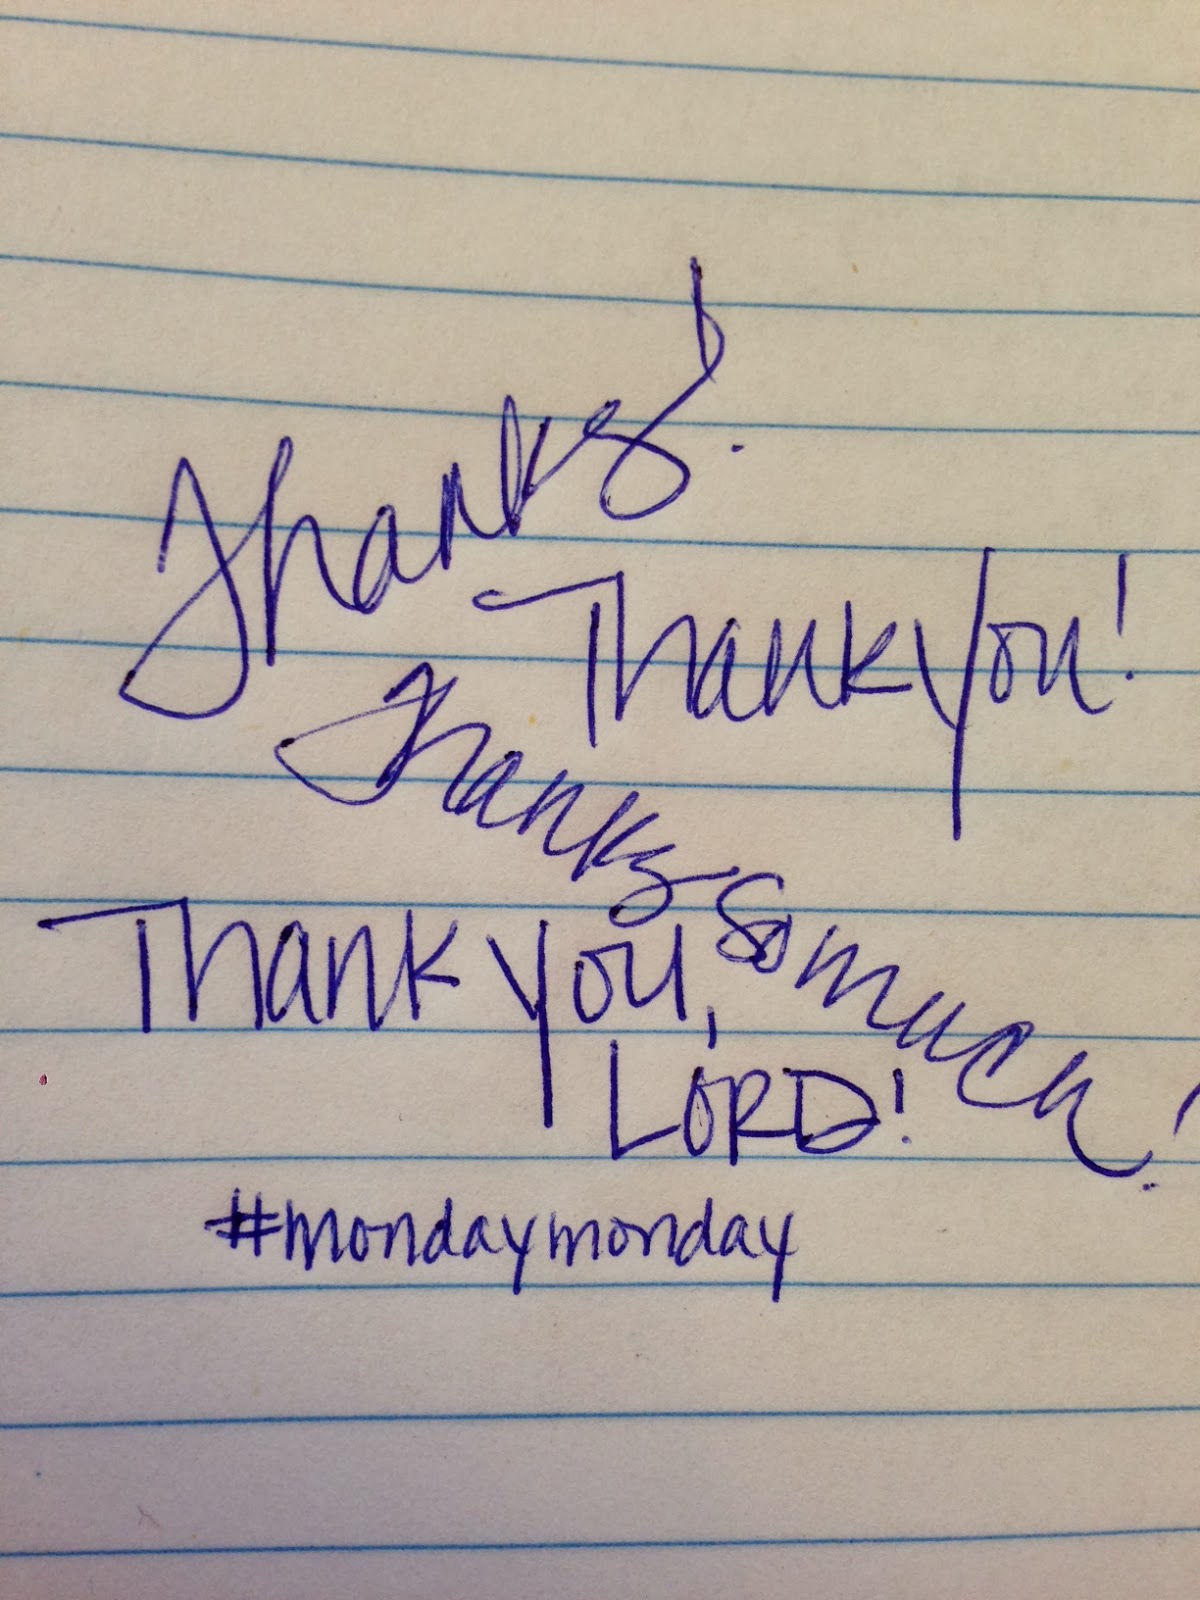 Thanks!
Thank you!
Thanks so much!
Thank you,
LORD!
#mondaymonday